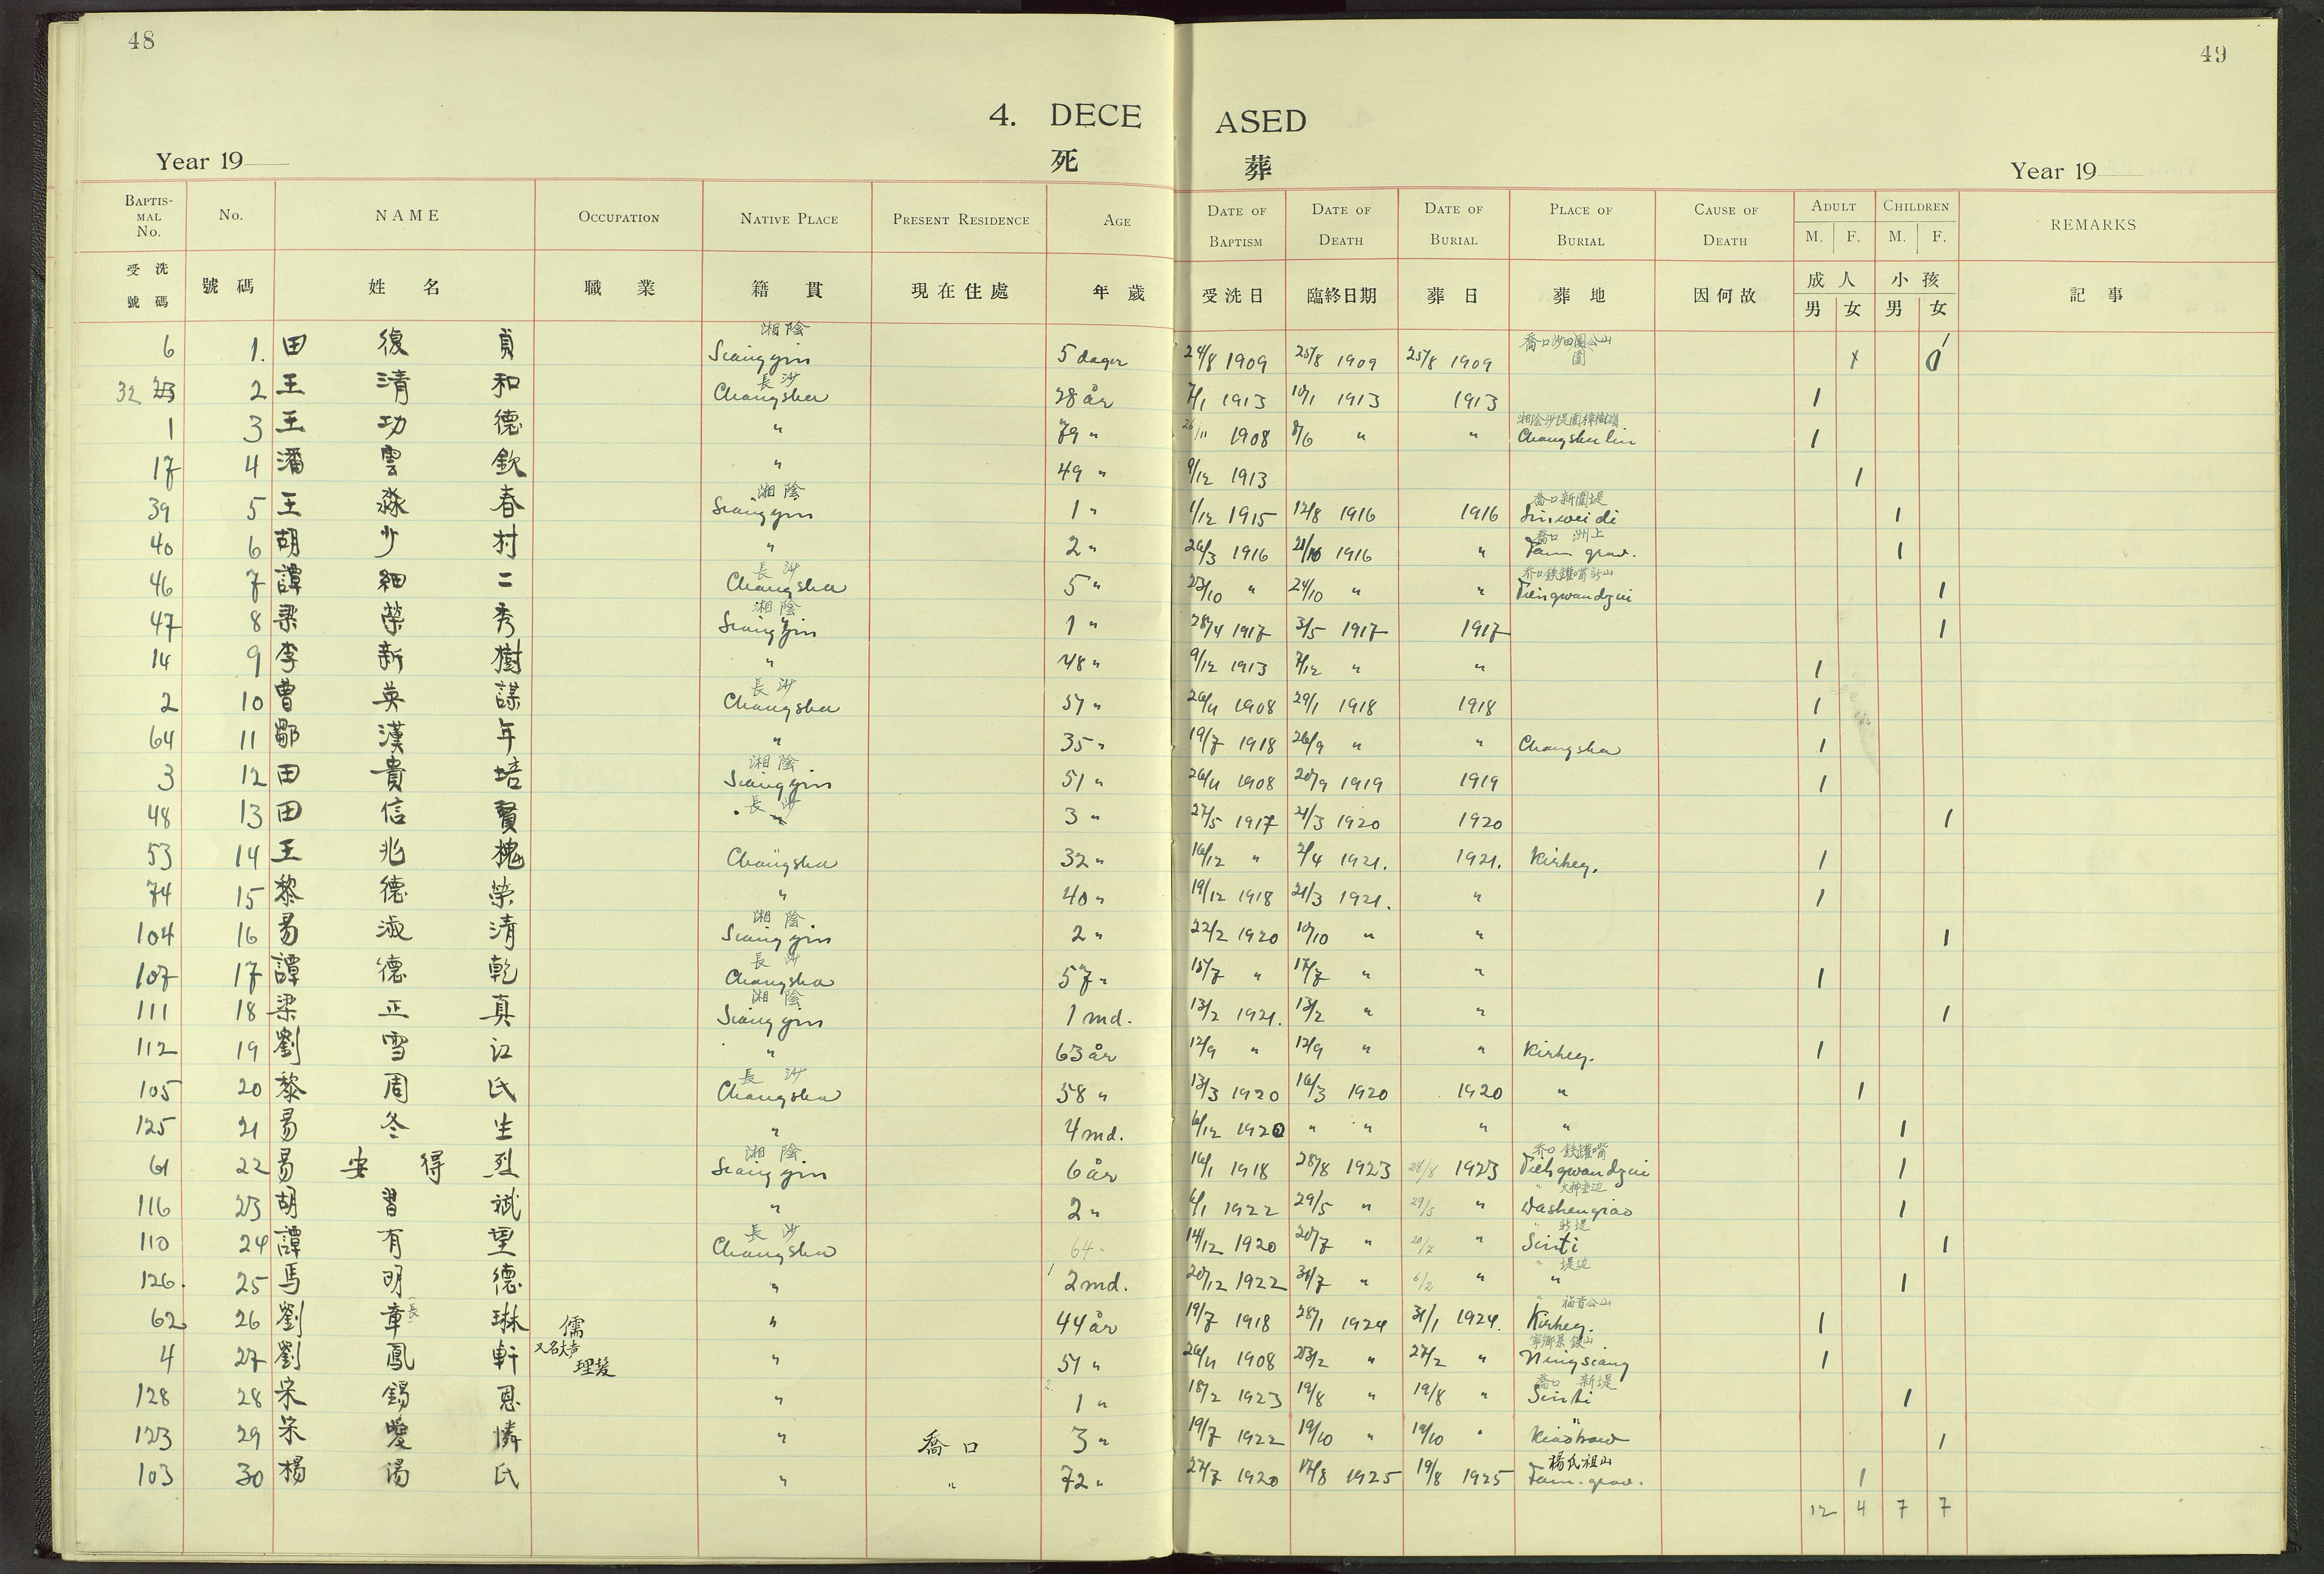 48
49
4. DECEASED
死 葬
Year 19
Year 19
BAPTISMAL No. No. NAME OCCUPATION NATIVE PLACE PRESENT RESIDENCE AGE DATE OF BAPTISM DATE OF DEATH DATE OF BURIAL PLACE OF BURIAL CAUSE OF DEATH ADULT CHILDREN REMARKS
M. F. M. F.
受洗號碼 號碼 姓名 職業 籍貫 現在住處 年歲 受洗日 臨終日期 葬日 葬地 因何故 成人 小孩 記事
男 女 男 女
湘陰
6 1. 田復貞 Siangyin 5 dager 24/8 1909 25/8 1909 25/8 1909
長沙
32 23 2 王清和 Changsha 28 år 7/1 1913 10/1 1913 1913 1
1 3 王功德 " 79 " 26/11 1908 8/6 " " Changshulin 1
17 4 潘雲欽 " 49 " 9/12 1913 1
湘陰 喬口新圍堤
39 5 王淼春 Siangyin 1 " 1/12 1915 12/8 1916 1916 Sinweidi 1
喬口 洲上
40 6 胡少村 " 2 " 26/3 1916 21/10 1916 " Fam grav. 1
長沙
46 7 譚細二 Changsha 5 " 23/10 " 24/10 " " Tiehgwandzui 1
湘陰
47 8 梁榮秀 Siangyin 1 " 28/4 1917 3/5 1917 1917 1
14 9 李新樹 " 48 " 9/12 1913 7/12 " " 1
長沙
2 10 曹英謀 Changsha 57 " 26/11 1908 29/1 1918 1918 1
64 11 鄒漢年 " 35 " 19/7 1918 26/9 " " Changsha 1
湘陰
3 12 田貴培 Siangyin 51 " 26/11 1908 20/9 1919 1919 1
長沙
48 13 田信賢 " 3 " 27/5 1917 21/3 1920 1920 1
53 14 王兆槐 Changsha 32 " 16/12 " 2/4 1921. 1921. Kirkeg. 1
74 15 黎德榮 " 40 " 19/12 1918 21/3 1921. " 1
湘陰
104 16 易淑清 Siangyin 2 " 22/2 1920 10/10 " " 1
長沙
107 17 譚德乾 Changsha 57 " 15/7 " 17/7 " " 1
湘陰
111 18 梁正真 Siangyin 1 md. 13/2 1921. 13/2 " " 1
112 19 劉雪江 " 63 år 12/9 " 12/9 " " Kirkeg. 1
長沙
105 20 黎周氏 Changsha 58 " 13/3 1920 16/3 1920 1920 " 1
125 21 易冬生 " 4 md. 6/12 1920 " " " " 1
湘陰 喬口 鉄罐嘴
61 22 易安得烈 Siangyin 6 år 16/1 1918 28/8 1923 28/8 1923 Tiehgwandzui 1
116 23 胡習斌 " 2 " 6/1 1922 29/5 " 29/5 " Dashenqiao 1
長沙 " 新堤
110 24 譚有望 Changsha 64 " 14/12 1920 20/7 " 20/7 " Sinti 1
" 堤边
126. 25 馬明德 " 2 md. 20/12 1922 31/7 " " " 1
" 福音公山
62 26 劉章(長)琳 儒 " 44 år 19/7 1918 28/1 1924 31/1 1924. Kirkeg. 1
4 27 劉鳳軒 理髮 " 51 " 26/11 1908 23/2 " 27/2 " Ningsiang 1
喬口 新堤
128 28 宋錫恩 " 1 " 18/2 1923 19/8 " 19/8 " Sinti 1
123 29 宋愛憐 " 喬口 3 " 19/7 1922 19/10 " 19/10 " 1
楊氏祖山
103 30 楊湯氏 " " 72 " 27/7 1920 17/8 1925 19/8 1925 Fam. grav. 1
12 4 7 7